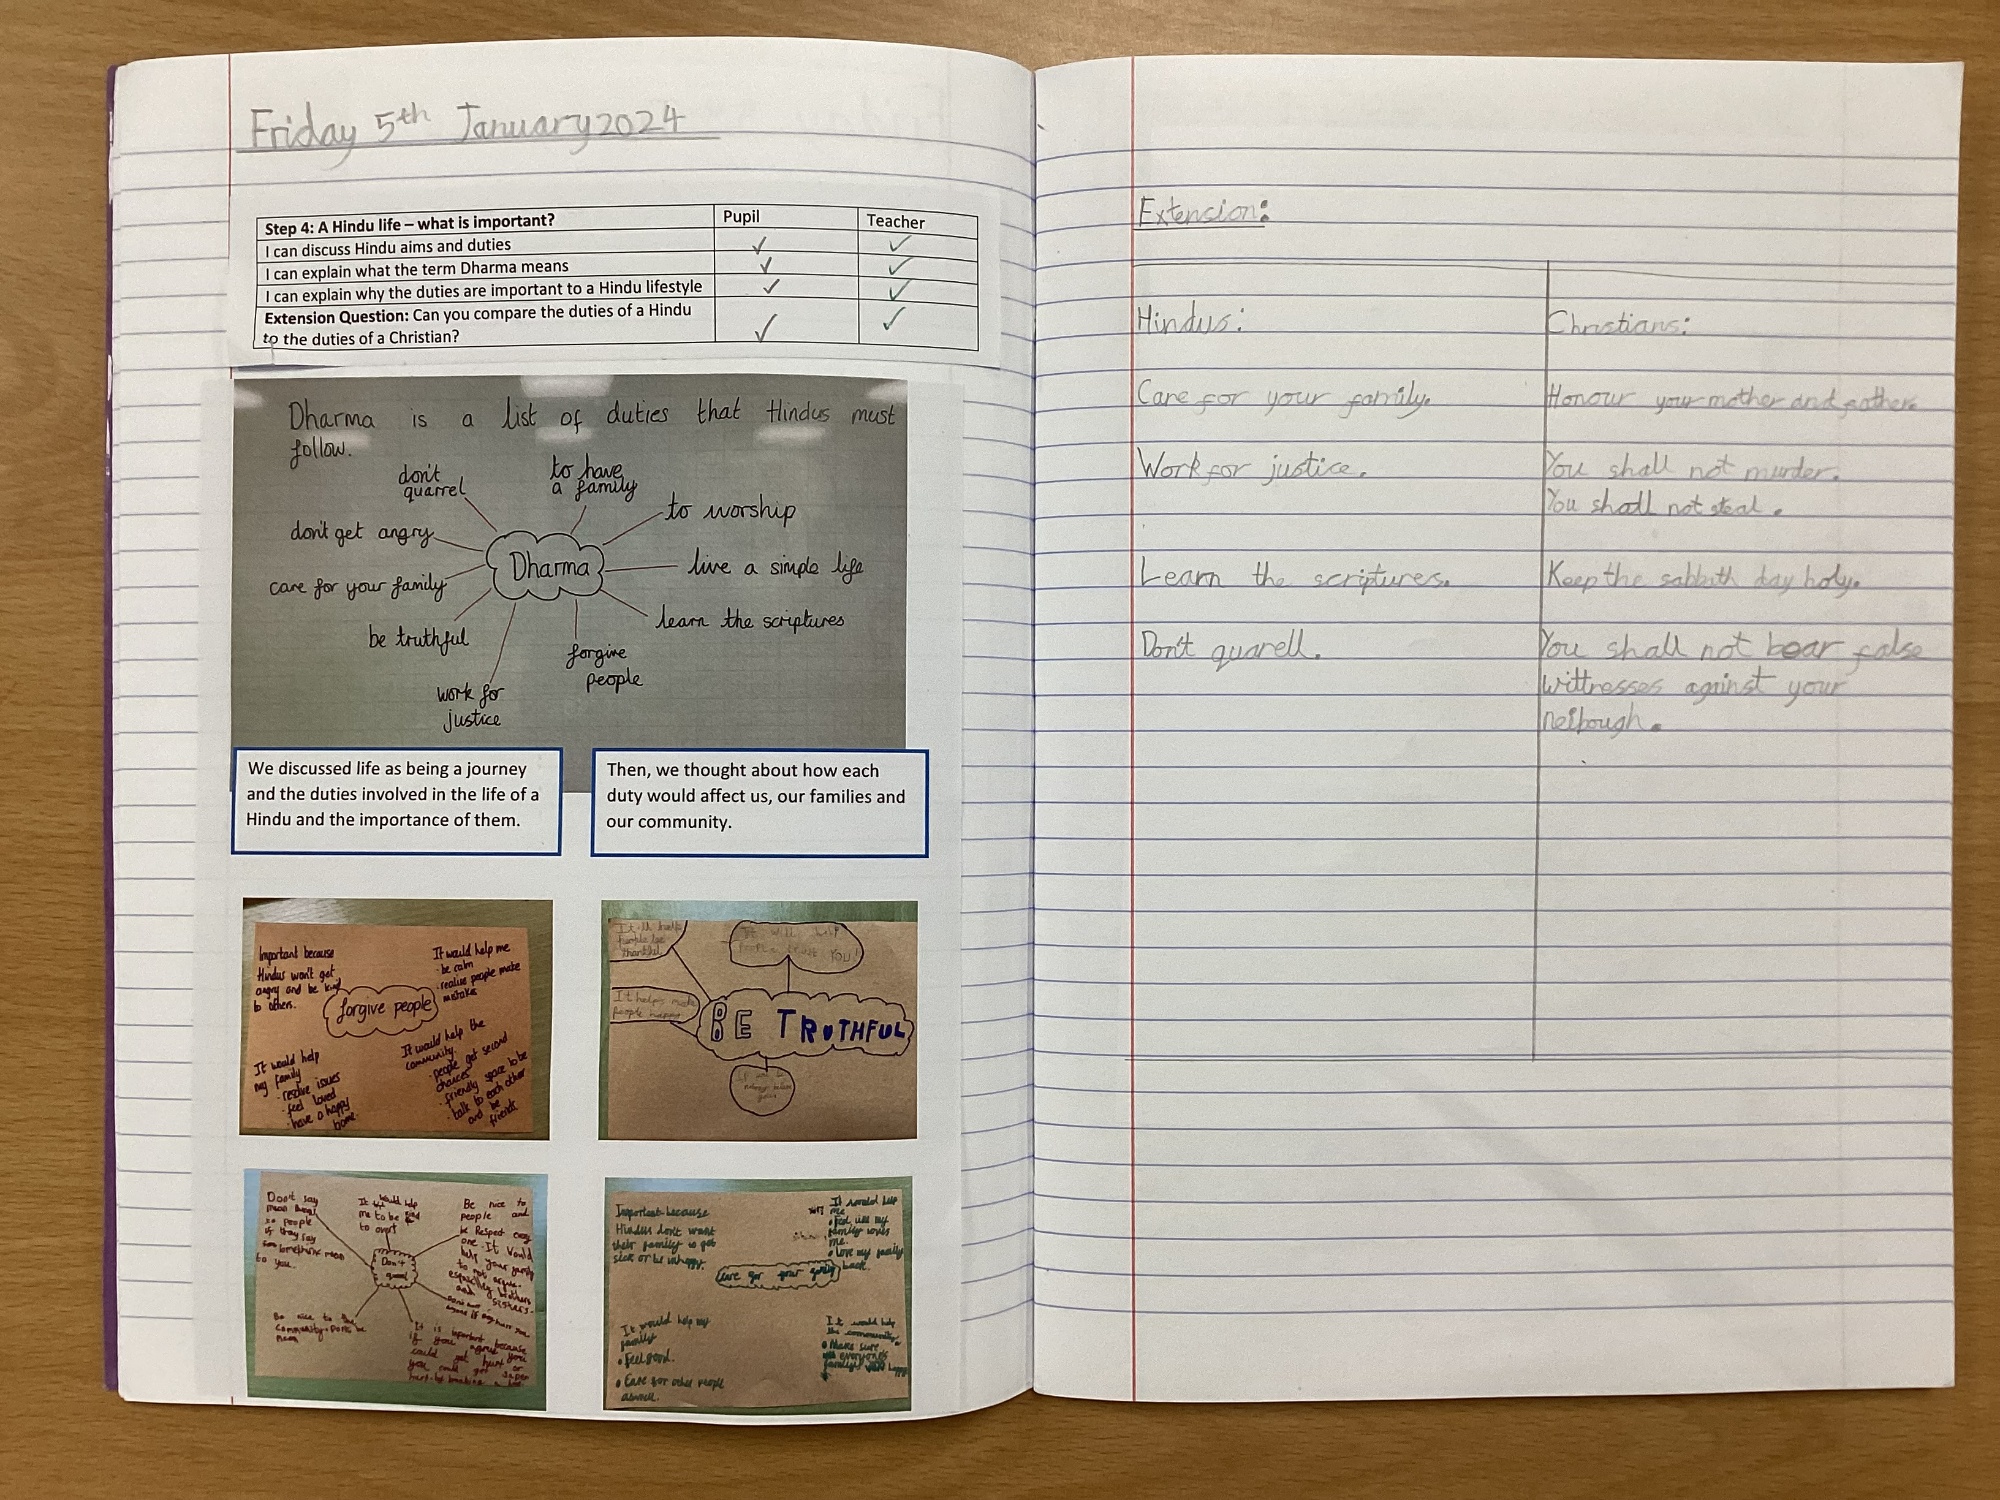 Friday 5th January 2024
Step 4: A Hindu life – what is important?
Pupil
Teacher
I can discuss Hindu aims and duties
✓
✓
I can explain what the term Dharma means
✓
✓
I can explain why the duties are important to a Hindu lifestyle
✓
✓
Extension Question: Can you compare the duties of a Hindu
to the duties of a Christian?
✓
✓
Dharma is a list of duties that Hindus must
follow.
don't
quarrel
to have
a family
to worship
don't get angry
Dharma
live a simple life
care for your family
learn the scriptures
be truthful
forgive
people
work for
justice
We discussed life as being a journey
and the duties involved in the life of a
Hindu and the importance of them.
Then, we thought about how each
duty would affect us, our families and
our community.
Important because
Hindus won't get
angry and be kind
to others.
It would help me
- be calm
- realise people make
mistakes
forgive people
It would help
my family
- resolve issues
- feel loved
- have a happy
home
It would help the
community.
- people get second
chances
- friendly space to be
- talk to each other
and be
friends
It will help
people trust YOU!
people be
thankful
It helps make
people happy
BE TRUTHFUL
Don't say
mean things
to people
if they say
mean
to you.
It would help
me to be
to
Be nice to
people and
Respect every
one. It would
help your family
to not argue.
especially brothers
and sisters.
Don't
Be nice to the
community
It is important because
if you
could get hurt or
you could get
Important because
Hindus don't want
their family to get
sick or be unhappy.
It would help
me
• feel like my
family loves
me.
• love my family
back.
care for your family
It would help my
family
• Feel good.
• Care for other people
aswell.
It would help
the community.
• Make sure
everyone's
family
Extension:
Hindus:
Christians:
Care for your family.
Honour your mother and father.
Work for justice.
You shall not murder.
You shall not steal.
Learn the scriptures.
Keep the sabbath day holy.
Don't quarell.
You shall not bear false
wittresses against your
neibough.